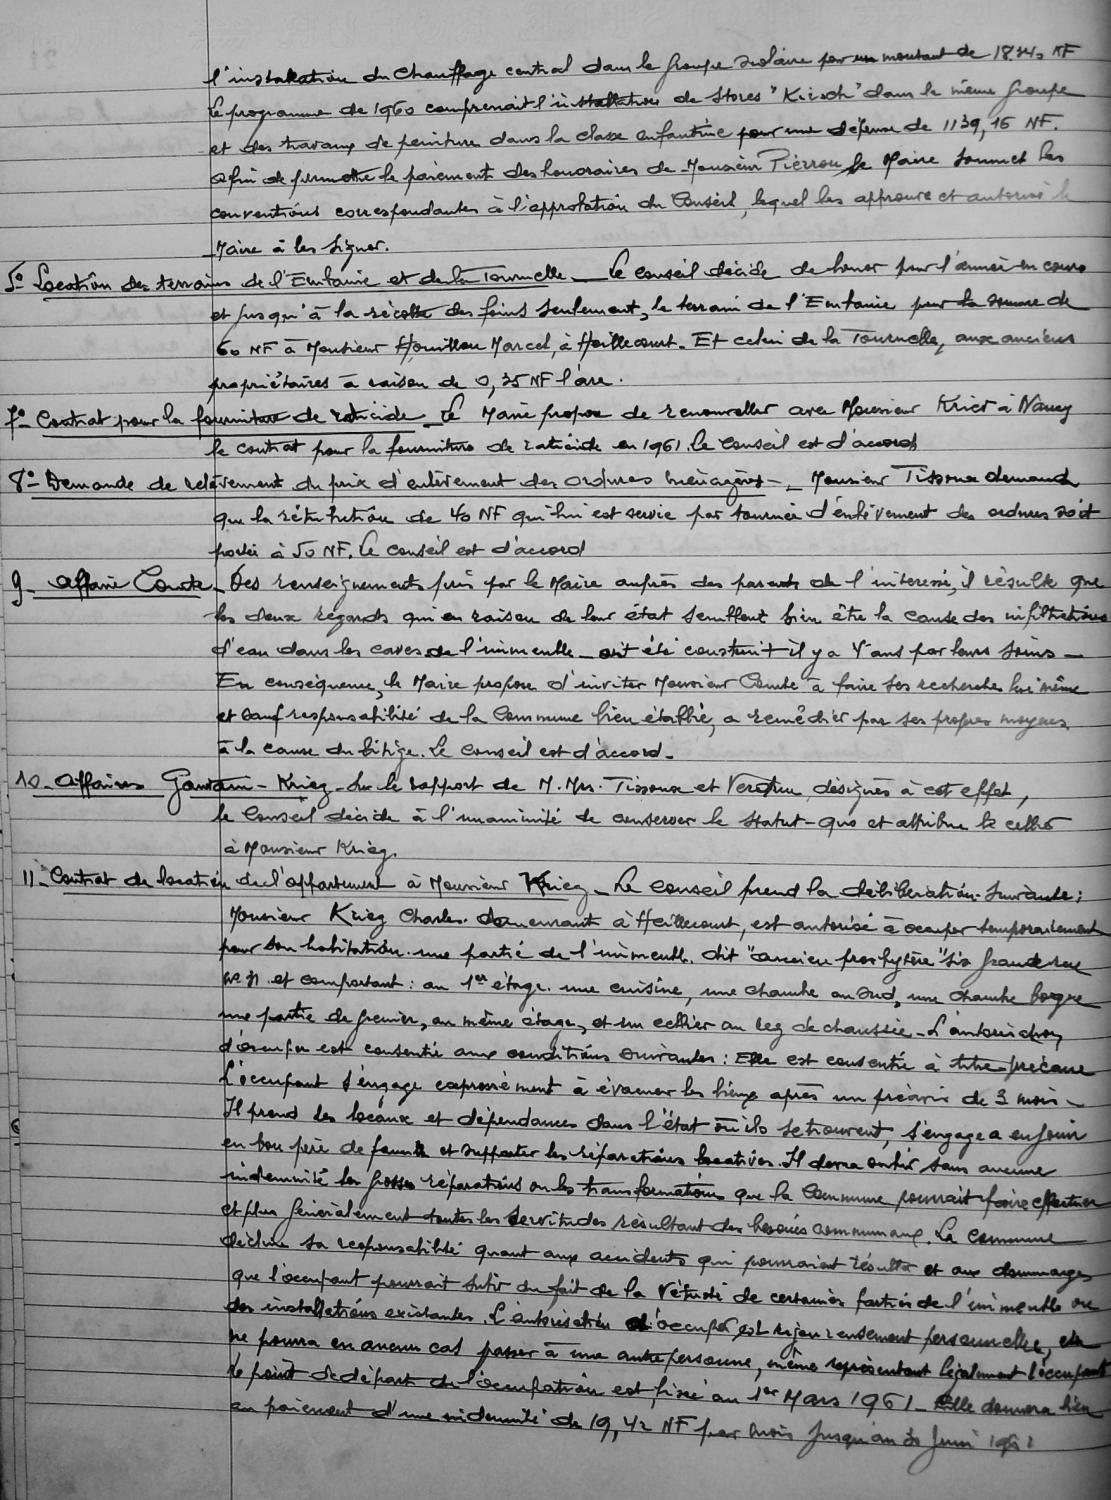 l'installation du chauffage central dans le groupe scolaire pour un montant de 1834, NF
Le programme de 1960 comprenait l'installation de stores "Kirsch" dans le même groupe
et des travaux de peinture dans la classe enfantine pour une dépense de 1139,15 NF.
Afin de permettre le paiement des honoraires de Monsieur Pierron le Maire soumet les
conventions correspondantes à l'approbation du Conseil, lequel les approuve et autorise le
Maire à les signer.
5° Location des terrains de l'Embanie et de la Tournelle - Le conseil décide de louer pour l'année en cours
et jusqu'à la récolte des foins seulement, le terrain de l'Embanie pour la somme de
60 NF à Monsieur Marcel, à Heillecourt. Et celui de la Tournelle, aux anciens
propriétaires à raison de 0,35 NF l'are.
7° Contrat pour la fourniture de raticide - Le Maire propose de renouveller avec Monsieur à Nancy
le contrat pour la fourniture de raticide en 1961. le conseil est d'accord
8° Demande de relèvement du prix d'enlèvement des ordures ménagères - Monsieur Tissoux demande
que la rétribution de 40 NF qui lui est servie par tournée d'enlèvement des ordures soit
portée à 50 NF. Le conseil est d'accord
9 - Affaire Comte - Des renseignements pris par le Maire auprès des parents de l'interessé, il résulte que
les deux regards qui en raison de leur état semblent bien être la cause des infiltrations
d'eau dans les caves de l'immeuble - ont été construit il y a 4 ans par leurs soins -
En conséquence, le Maire propose d'inviter Monsieur Comte à faire ses recherches lui même
et sauf responsabilité de la Commune bien établie, a remédier par ses propres moyens
à la cause du litige. Le Conseil est d'accord -
10 - Affaires - Krieg - Sur le rapport de M. Mrs. Tissoux et désignés à cet effet,
le Conseil décide à l'unanimité de conserver le statut-quo et attribue le cellier
à Monsieur Krieg.
11 - Contrat de location de l'appartement à Monsieur Krieg - Le conseil prend la délibération suivante :
Monsieur Krieg Charles. demeurant à Heillecourt, est autorisé à occuper temporairement
pour son habitation. une partie de l'immeuble. dit "ancien presbytère" sis grande rue
et comportant : au 1er étage. une cuisine, une chambre au sud, une chambre borgne
une partie de grenier, au même étage, et un cellier au rez de chaussée - L'autorisation
d'occuper est consentie aux conditions suivantes : Elle est consentie à titre précaire
L'occupant s'engage expressément à évacuer les lieux après un préavis de 3 mois -
Il prend les locaux et dépendances dans l'état où ils se trouvent, s'engage a en jouir
en bon père de famille et supporter les réparations locatives. Il devra subir sans aucune
indemnité les grosses réparations ou les transformations que la Commune pourrait faire effectuer
et plus généralement toutes les servitudes résultant des besoins communaux. La commune
décline sa responsabilité quant aux accidents qui pourraient résulter et aux dommages
que l'occupant pourrait subir du fait de la vétusté de certaines parties de l'immeuble ou
des installations existantes. L'autorisation d'occuper est rigoureusement personnelle, elle
ne pourra en aucun cas passer à une autre personne, même représentant légalement l'occupant
le point de départ de l'occupation est fixé au 1er Mars 1961 - Elle donnera lieu
au paiement d'une indemnité de 19,42 NF par mois jusqu'au 30 Juin